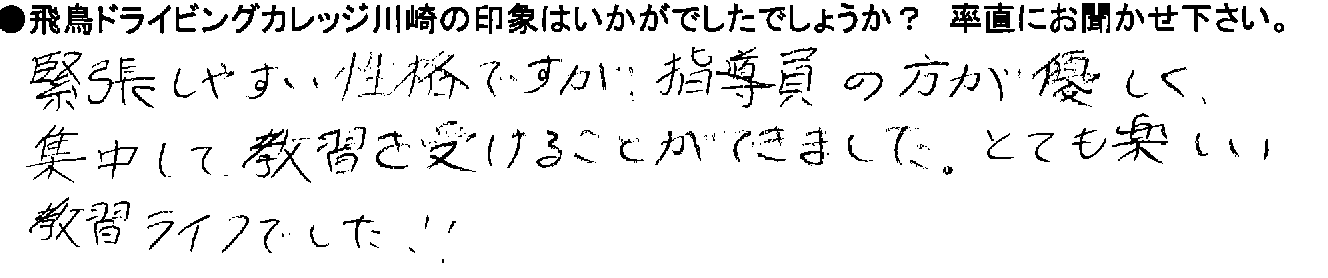 ●飛鳥ドライビングカレッジ川崎の印象はいかがでしたでしょうか？ 率直にお聞かせ下さい。
緊張しやすい性格ですが、指導員の方が優しく、
集中して教習を受けることができました。とても楽しい
教習ライフでした!!